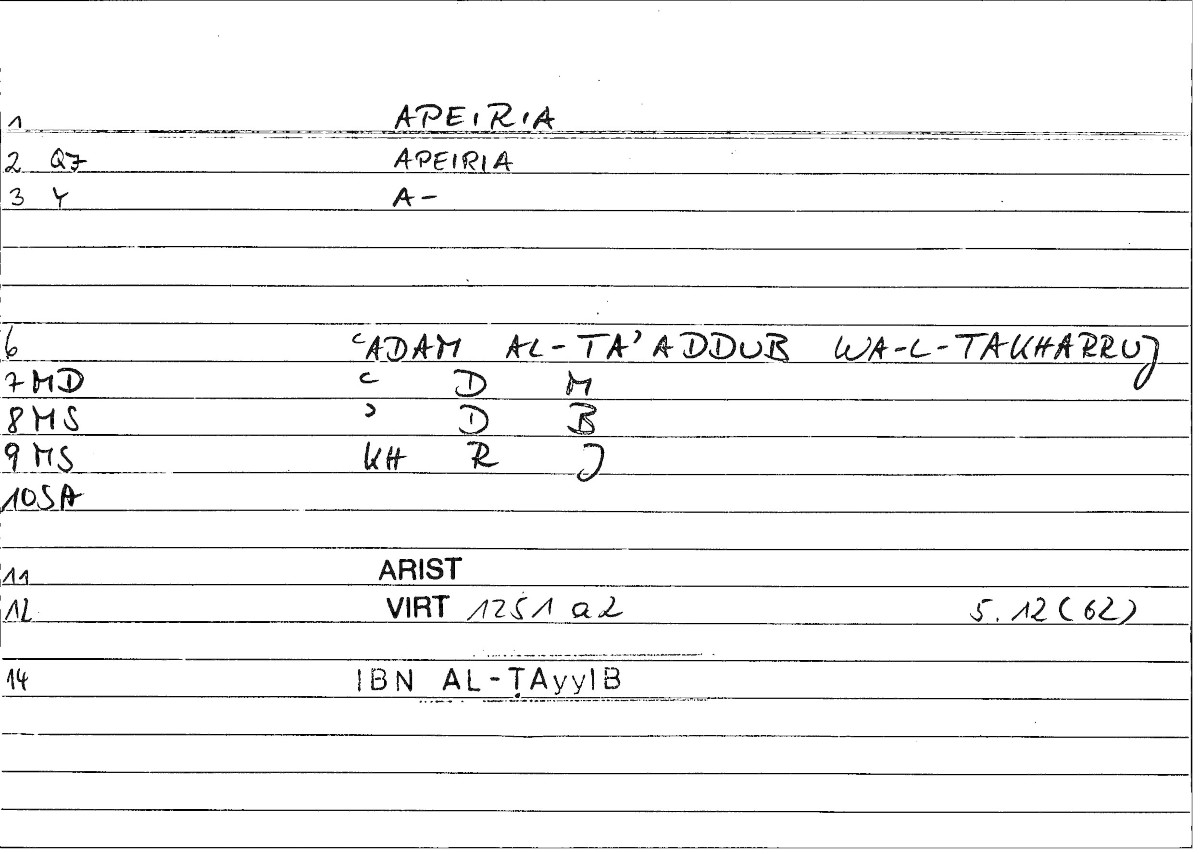 1 APEIRIA
2 Q7 APEIRIA
3 Y A-
6 ʿADAM AL-TAʾADDUB WA-L-TAKHARRUJ
7 MD ʿ D M
8 MS ʾ D B
9 MS KH R J
10 SA
11 ARIST
12 VIRT 1251 a 2 5.12 (62)
14 IBN AL-ṬAyyIB